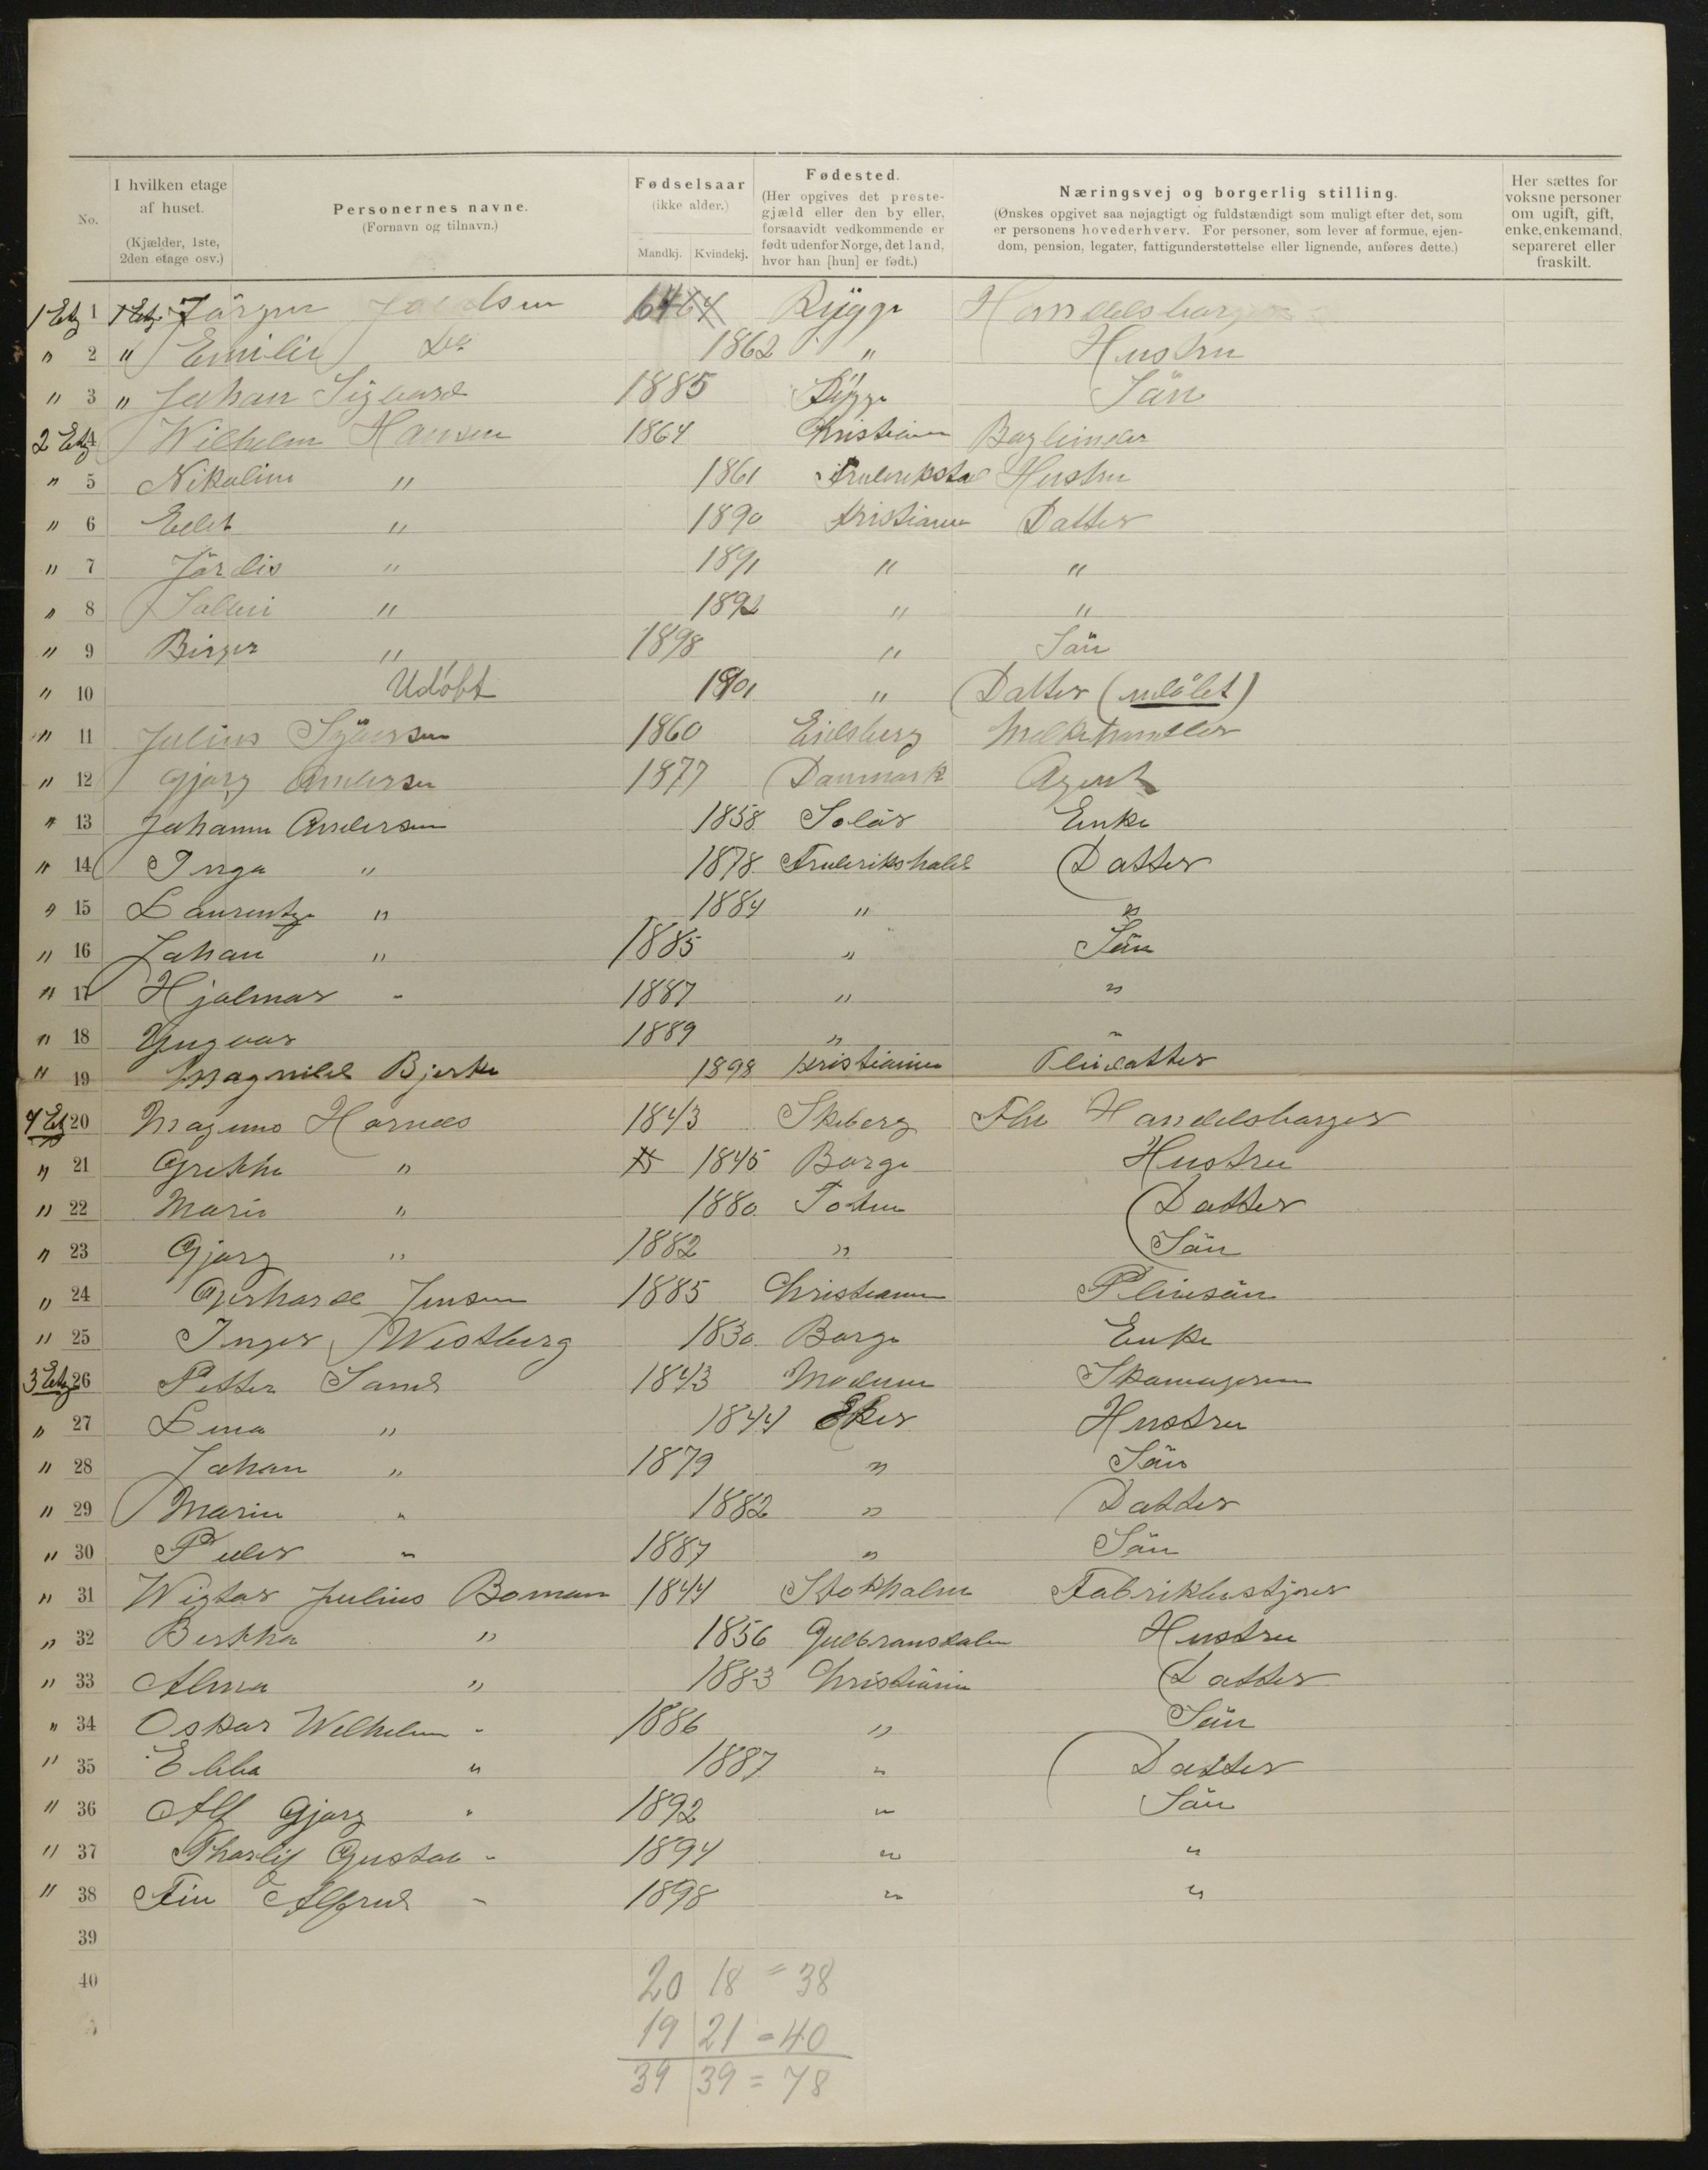 No.
I hvilken etage af huset.
(Kjælder, 1ste, 2den etage osv.)
Personernes navne.
(Fornavn og tilnavn.)
Fødselsaar
(ikke alder.)
Mandkj. Kvindekj.
Fødested.
(Her opgives det prestegjæld eller den by eller, forsaavidt vedkommende er født udenfor Norge, det land, hvor han [hun] er født.)
Næringsvej og borgerlig stilling.
(Ønskes opgivet saa nøjagtigt og fuldstændigt som muligt efter det, som er personens hovederhverv. For personer, som lever af formue, ejendom, pension, legater, fattigunderstøttelse eller lignende, anføres dette.)
Her sættes for voksne personer om ugift, gift, enke, enkemand, separeret eller fraskilt.
1 Etg 1 1 Etg Jörgen 64 Rygge
" 2 " Emilie Do 1862 " Hustru
" 3 " Johan Sigvard 1885 Rygge Sön
2 Etg 4 Wilhelm Hansen 1864 Kristiania
" 5 Nikoline " 1861 Frederikstad Hustru
" 6 " 1890 Kristiania Datter
" 7 Jördis " 1891 " "
" 8 " 1892 " "
" 9 Birger " 1898 " Sön
" 10 Udöbt 1901 " Datter (udöbt)
" 11 Julius 1860 Eidsberg Melkehandler
" 12 Gjorg Andersen 1877 Danmark Agent
" 13 Johanne Andersen 1858 Solör Enke
" 14 Inga " 1878 Frederikshald Datter
" 15 Laurentze " 1884 " "
" 16 Johan " 1885 " Sön
" 17 Hjalmar " 1887 " "
" 18 Yngvar 1889 " "
" 19 Magnild Bjerke 1898 Kristiania Pleiedatter
4 Etg 20 Magnus Harnes 1843 Skiberg Fhv Handelsborger
" 21 Grethe " 1845 Borge Hustru
" 22 Marie " 1880 Toten Datter
" 23 Gjorg " 1882 " Sön
" 24 Gerhard Jensen 1885 Christiania Pleiesön
" 25 Inger Westberg 1830 Borge Enke
3 Etg 26 Petter Sand 1843 Modum Skomager
" 27 Lina " 1844 Eker Hustru
" 28 Johan " 1879 " Sön
" 29 Marie " 1882 " Datter
" 30 Peder " 1887 " Sön
" 31 Wigtor Julius Boman 1844 Stokholm Fabrikbestjorer
" 32 Bertha " 1856 Gulbransdalen Hustru
" 33 Alma " 1883 Christiania Datter
" 34 Oskar Wilhelm " 1886 " Sön
" 35 Ebba " 1887 " Datter
" 36 Alf Gjorg " 1892 " Sön
" 37 Thorlif Gustav " 1894 " "
" 38 Fin Alfred " 1898 " "
39
40
20 18 = 38
19 21 = 40
39 39 = 78